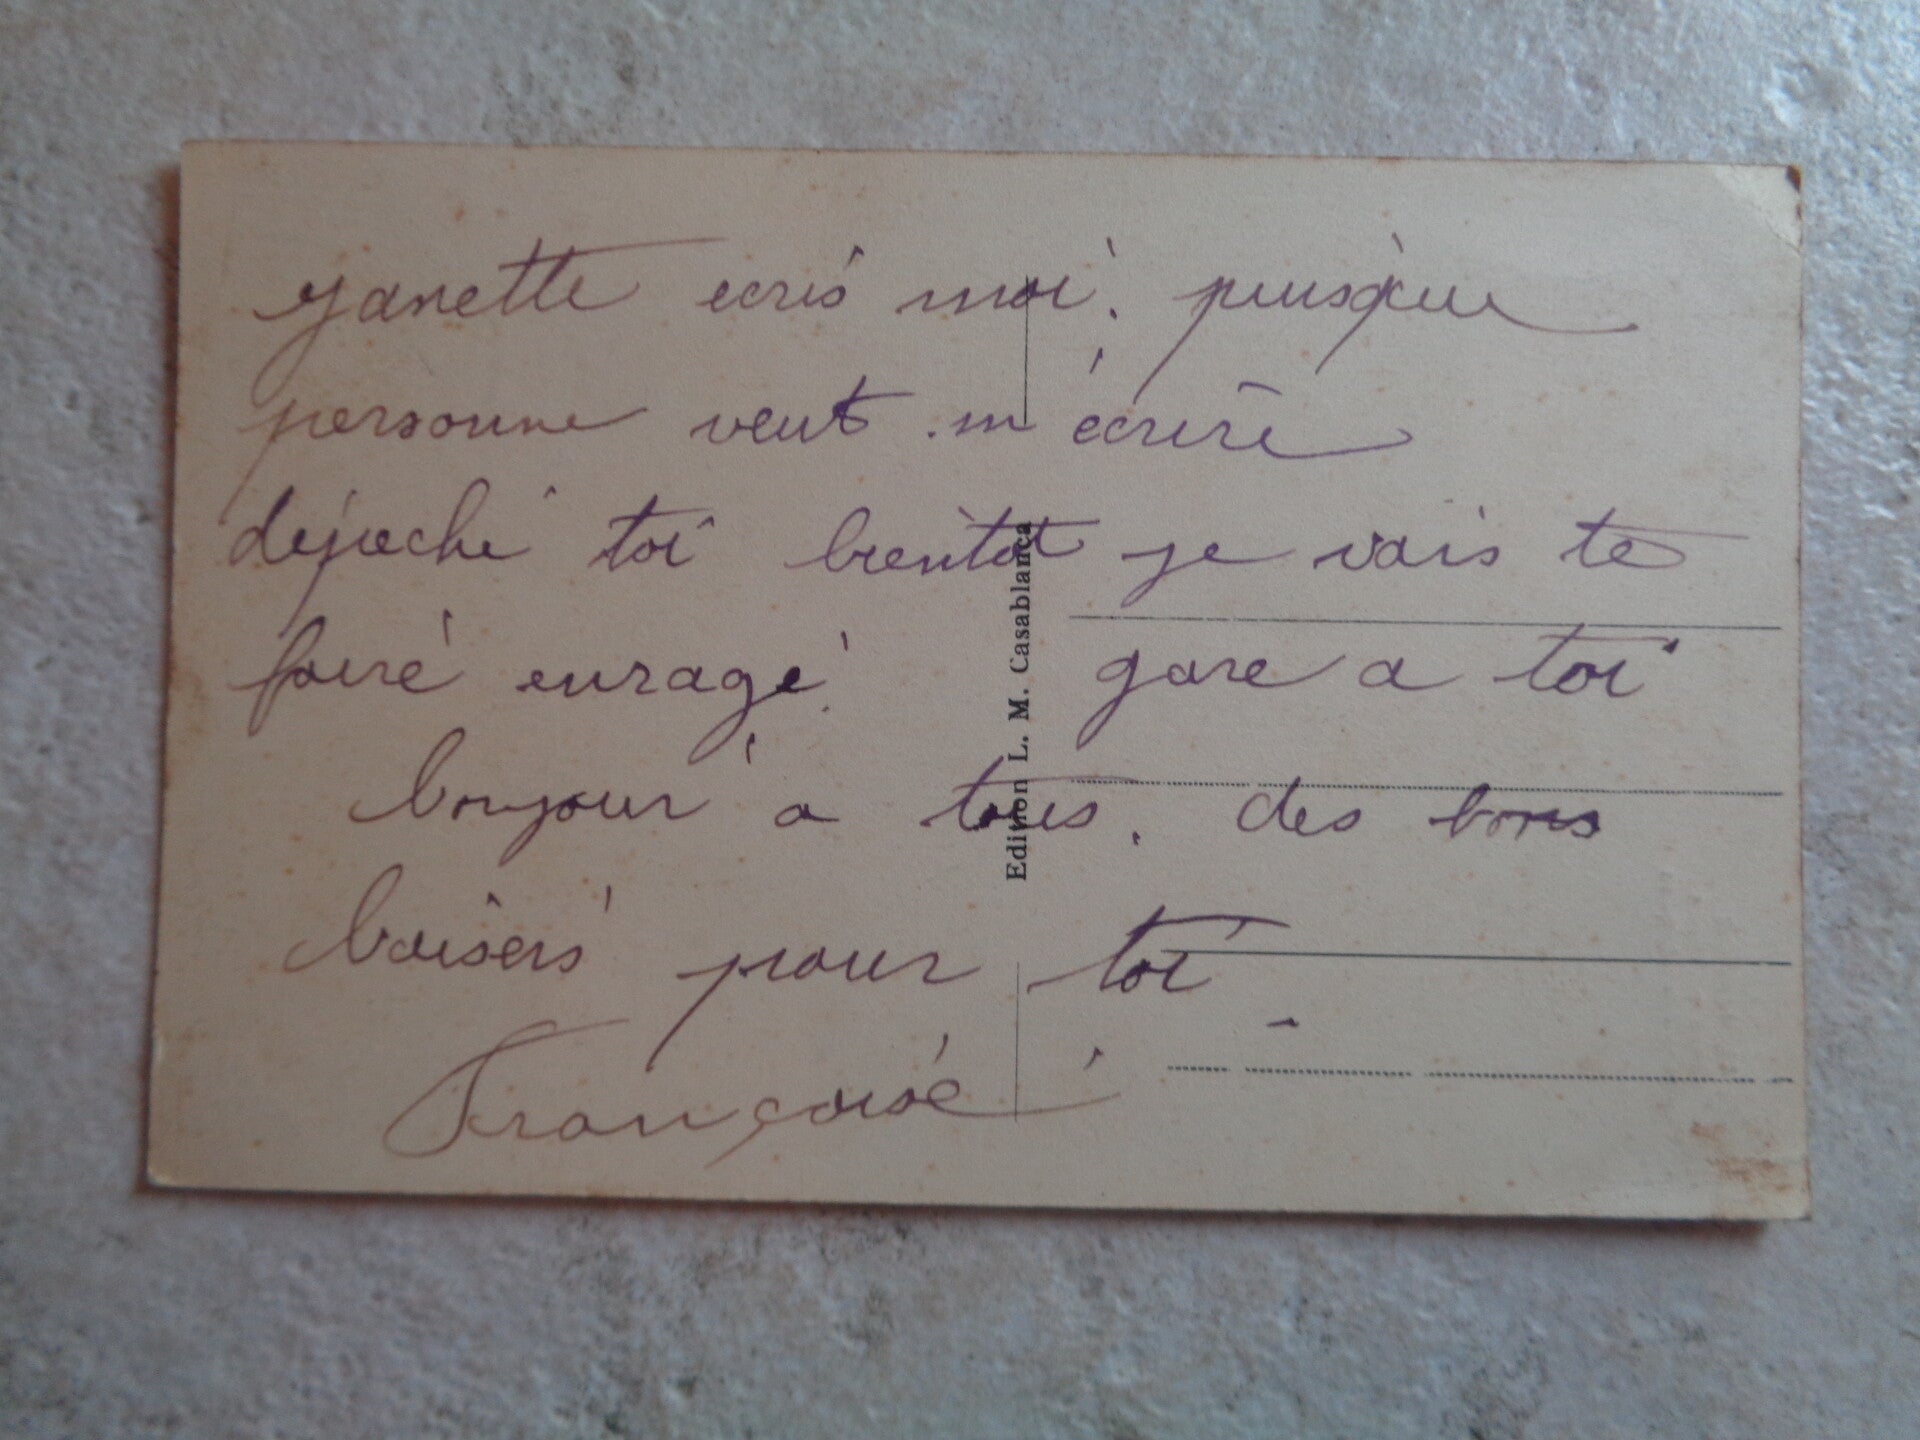 yanette ecris moi. puisque
personne veut m'écrire
dépeche toi bientot je vais te
faire enrage. gare a toi
bonjour a tous. des bons
baisers pour toi
Françoise
Edition L. M. Casablanca